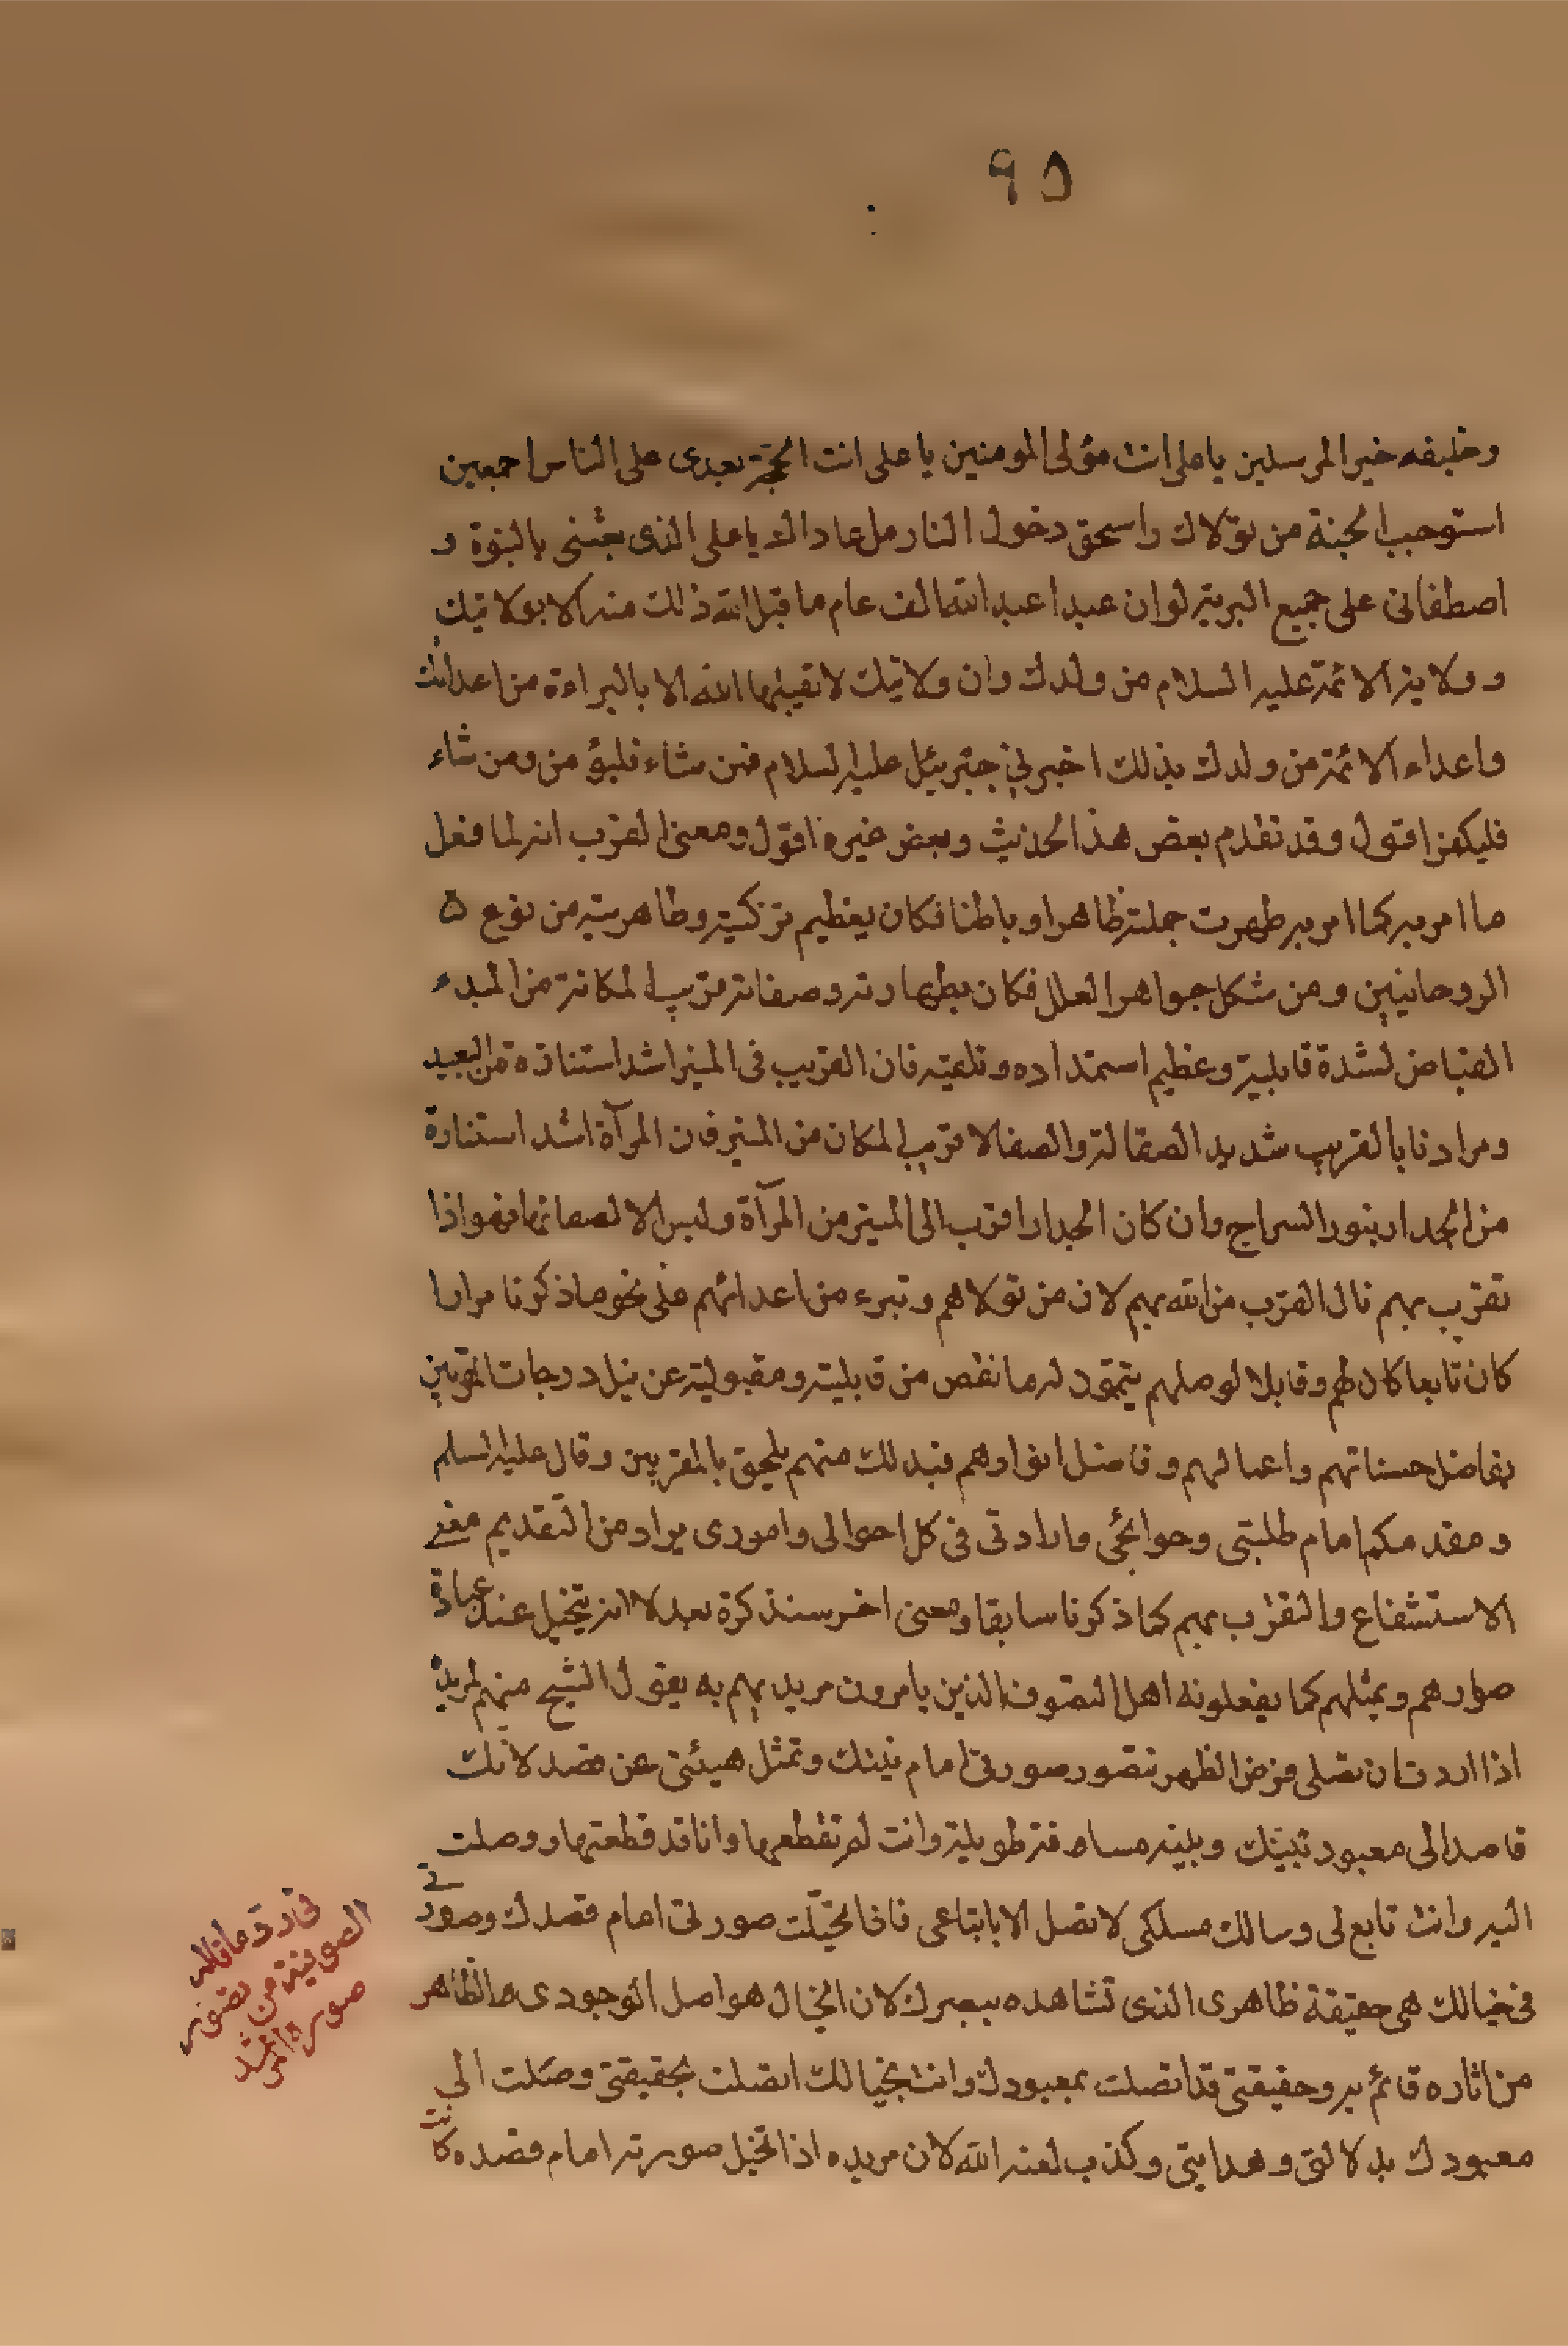 ٩٥
وخليفه خير المرسلين يا علي انت مولى المومنين يا على انت الحجة بعدى على الناس اجمعين
استوجب الجنة من تولاك واسحق دخول النار من عاداك يا على الذى بعثنى بالنبوة و
اصطفانى على جميع البرية لو ان عبدا عبد الله الف عام ما قبل الله ذلك منه الا بولايتك
وولاية الائمة عليه السلام من ولدك وان ولايتك لا تقبلها الله الا بالبراءة من اعدائك
واعداء الائمة من ولدك بذلك اخبرني جبرئيل عليه السلام فمن شاء فليؤمن ومن شاء
فليكفر اقول وقد تقدم بعض هذا الحديث وبعض غيره اقول ومعنى القرب انه لما فعل
ما امر به كما امر به طهرت جملته ظاهرا وباطنا فكان بعظيم تزكيته وطاهريته من نوع
الروحانيين ومن شكل جواهر العلل فكان بطهارته وصفاته قريب المكانة من المبدء
الفياض لشدة قابلية وعظيم استمداده وتلقيه فان القريب فى المنير اشد استنارة من البعيد
ومرادنا بالقريب شديد الصقالة والصفا لا قريب المكان من المنير فان المرآة اشد استنارة
من الجدار بنور السراج وان كان الجدار اقرب الى المنير من المرآة وليس الا لصفائها فهو اذا
تقرب بهم نال القرب من الله بهم لان من تولاهم وتبرء من اعدائهم على نحو ما ذكرنا مرارا
كان تابعا كان لهم وقابلا لوصلهم يتممون له ما نقص من قابليته ومقبوليته عن نيل درجات المقربين
بفاضل حسناتهم واعمالهم وفاضل انوارهم فبذلك منهم يلحق بالمقربين وقال عليه السلم
ومقدمكم امام طلبتى وحوائجى وارادتى فى كل احوالى وامورى يراد من التقديم معنى
الاستشفاع والتقرب بهم كما ذكرنا سابقا ومعنى اخر سنذكرة بعد لا انه يتخيل عند عبادة
صورهم ويمثلهم كما يفعلونه اهل التصوف الذين يامرون مريديهم به يقول الشيخ منهم لمريده
اذا اردت ان تصلى فرض الظهر تتصور صورتى امام نيتك وتمثل هيئتى عن قصد لانك
قاصد الى معبود نيتك وبينه مسافة طويلة وانت لم تقطعها وانا قد قطعتها ووصلت
اليه وانت تابع لى وسالك مسلكى لا تصل الا باتباعى فاذا تخيّلت صورتى امام قصدك وصورتى
فى خيالك هى حقيقة ظاهرى الذى تشاهده ببصرك لان الخيال هو اصل الوجودى والظاهر
من اثاره قائم به وحقيقتى قد اتصلت بمعبودك وانت بخيالك اتصلت بحقيقتى وصلت الى
معبودك بدلالتى وهدايتى وكذب لعنه الله لان مريده اذا تخيل صورته امام قصده كانت
فى رد ما قاله
الصوفية من تصور
صورة المرشد